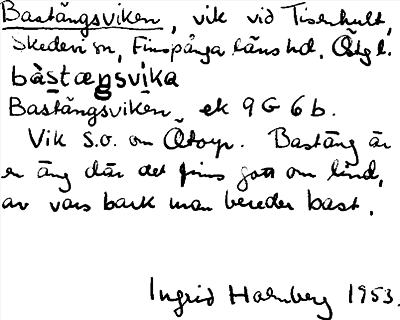 Bastängsviken, vik vid Tisenhult,
Skedevi sn, Finspånga läns hd, Ötg l.
bàstæŋsvika
Bastängsviken, ek 9 G 6 b.
Vik S.O. om Ötorp. Bastäng är
en äng där det finns gott om lind,
av vars bark man bereder bast.
Ingrid Holmberg 1953.